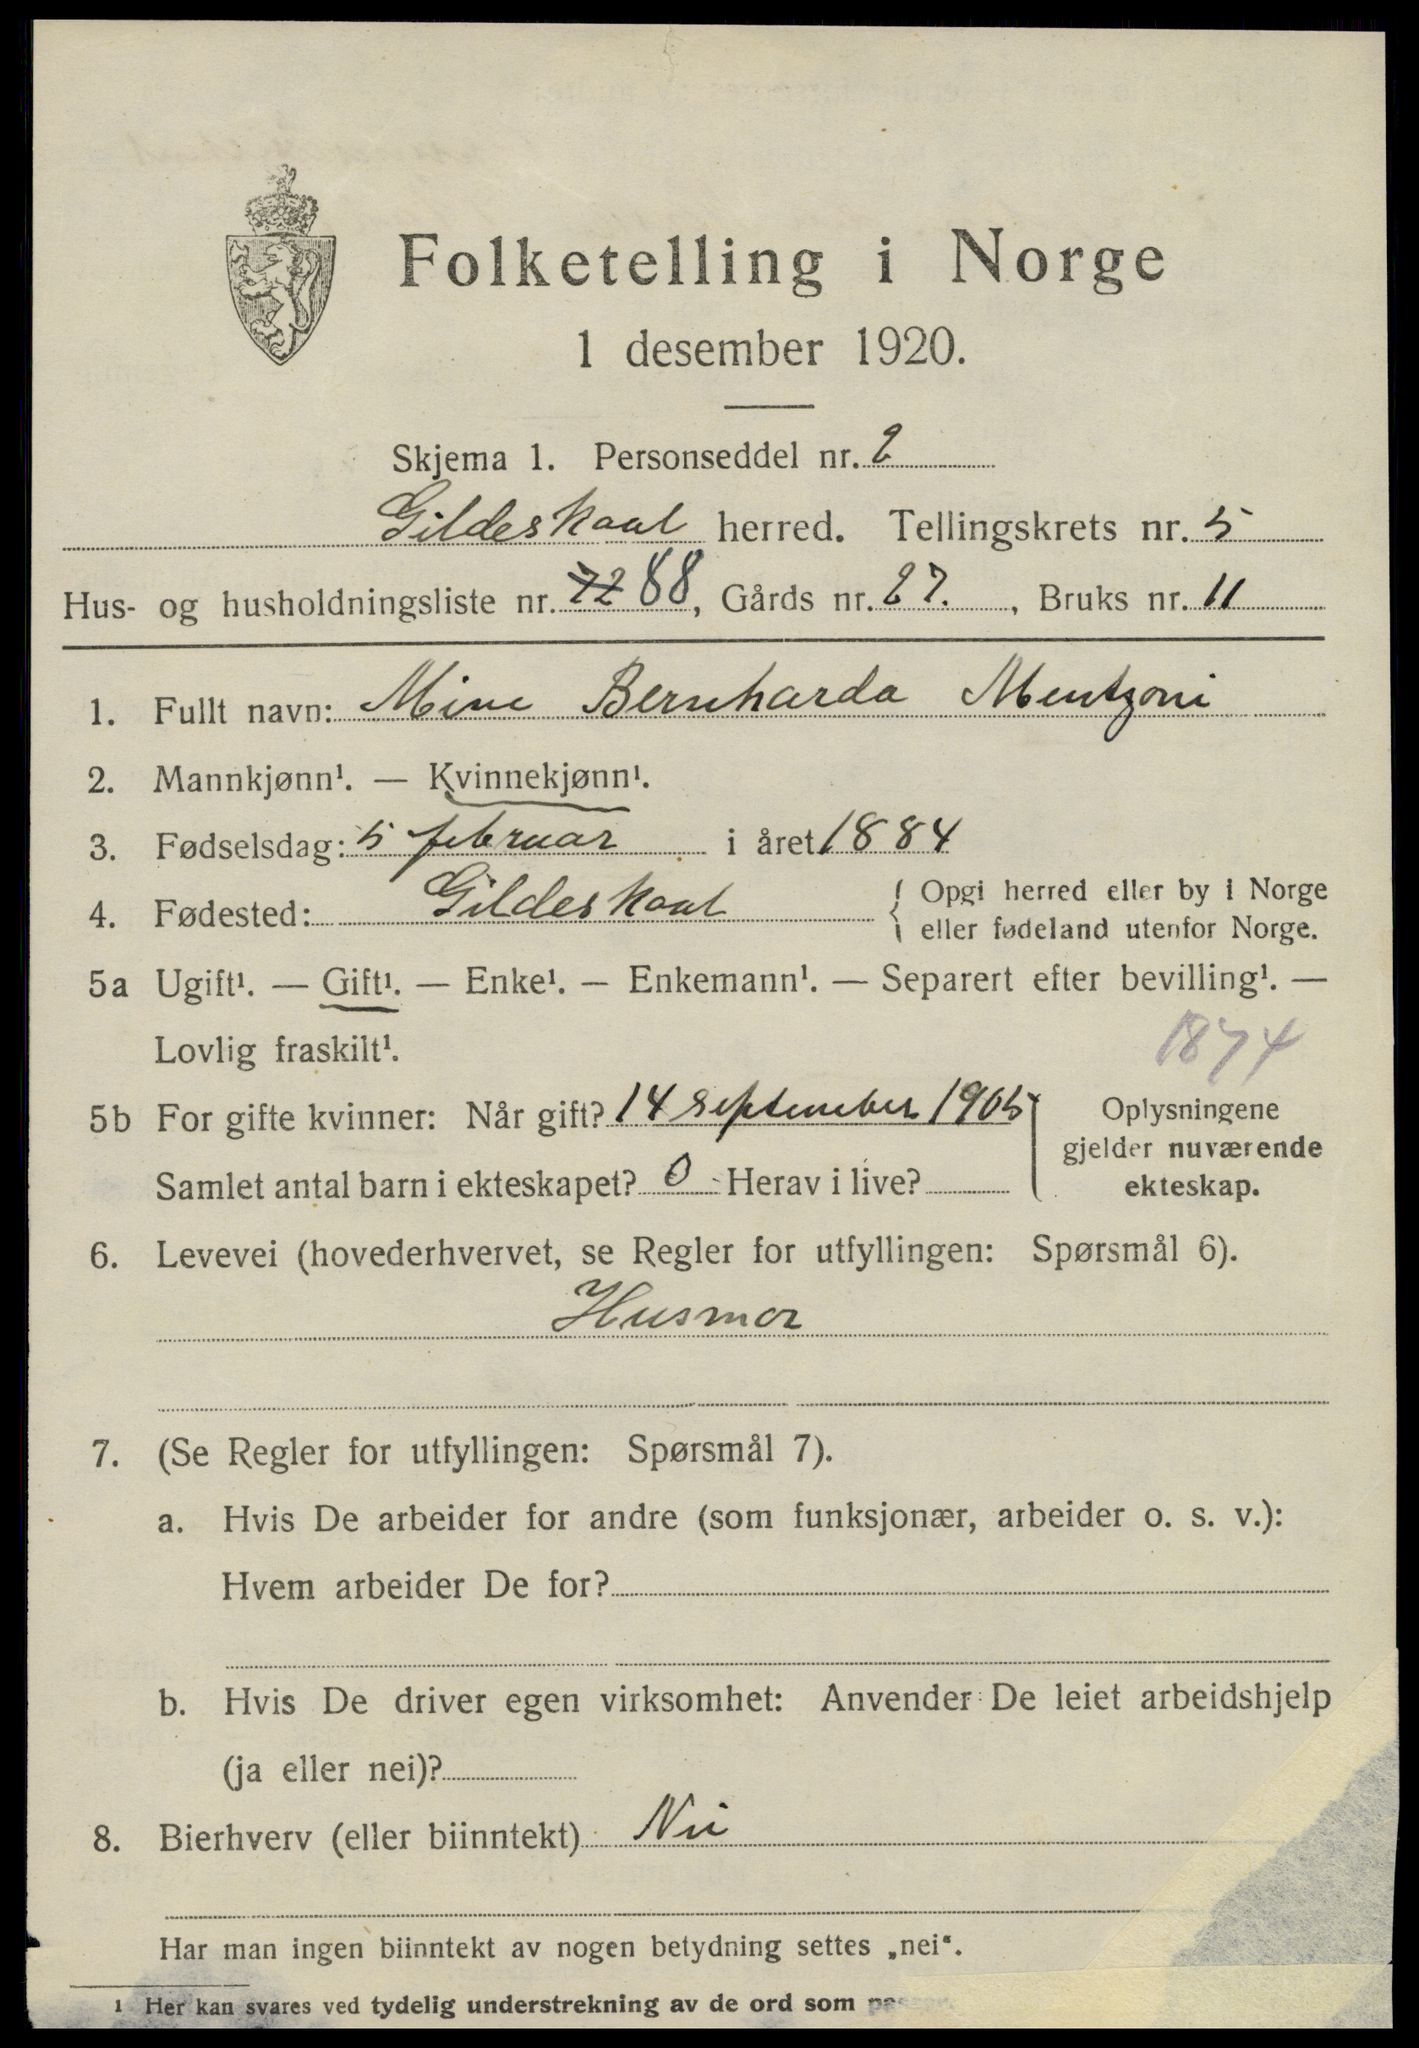 Folketelling i Norge
1 desember 1920.
Skjema 1. Personseddel nr. 2
Gildeskaal herred. Tellingskrets nr. 5
Hus- og husholdningsliste nr. 72 88, Gårds nr. 27., Bruks nr. 11
1. Fullt navn: Mine Bernharda Mentzoni
2. Mannkjønn¹. — Kvinnekjønn¹.
3. Fødselsdag: 5 februar i året 1884
4. Fødested: Gildeskaal { Opgi herred eller by i Norge
eller fødeland utenfor Norge.
5a Ugift¹. — Gift¹. — Enke¹. — Enkemann¹. — Separert efter bevilling¹. —
Lovlig fraskilt¹.
1874
5b For gifte kvinner: Når gift? 14 september 1905 Oplysningene
gjelder nuværende
Samlet antal barn i ekteskapet? 0 Herav i live? ekteskap.
6. Levevei (hovederhvervet, se Regler for utfyllingen: Spørsmål 6).
Husmor
7. (Se Regler for utfyllingen: Spørsmål 7).
a. Hvis De arbeider for andre (som funksjonær, arbeider o. s. v.):
Hvem arbeider De for?
b. Hvis De driver egen virksomhet: Anvender De leiet arbeidshjelp
(ja eller nei)?
8. Bierhverv (eller biinntekt) Nei
Har man ingen biinntekt av nogen betydning settes „nei“.
¹ Her kan svares ved tydelig understrekning av de ord som